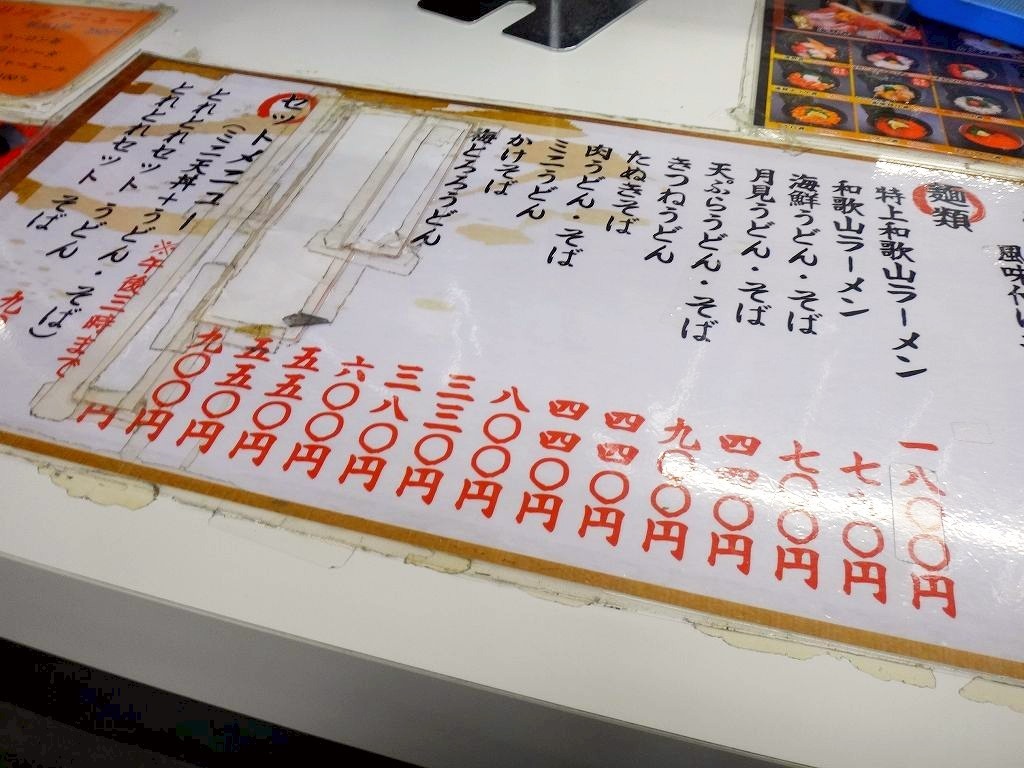 麺類
特上和歌山ラーメン 一八〇〇円
和歌山ラーメン
海鮮うどん・そば 七〇〇円
月見うどん・そば 四四〇円
天ぷらうどん・そば 九〇〇円
きつねうどん 四四〇円
たぬきそば 四四〇円
肉うどん・そば 八〇〇円
ミニうどん 三三〇円
かけそば 三八〇円
海とろろうどん 六〇〇円
五五〇円
五五〇円
九〇〇円
セットメニュー
(ミニ天丼+うどん・そば)
※午後二時まで
とれとれセット うどん
とれとれセット そば